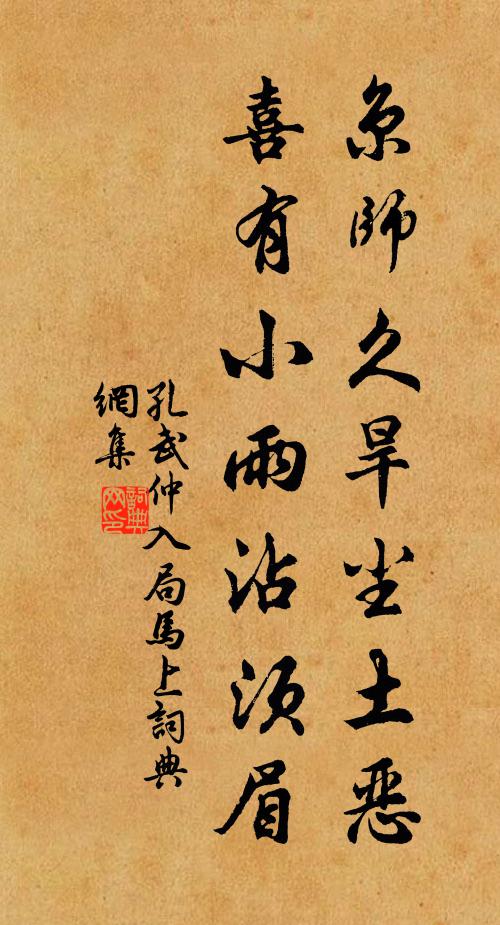 京師久旱尘土惡
喜有小雨沾須眉
孔武仲入局馬上詞典
網集
詞典
网印